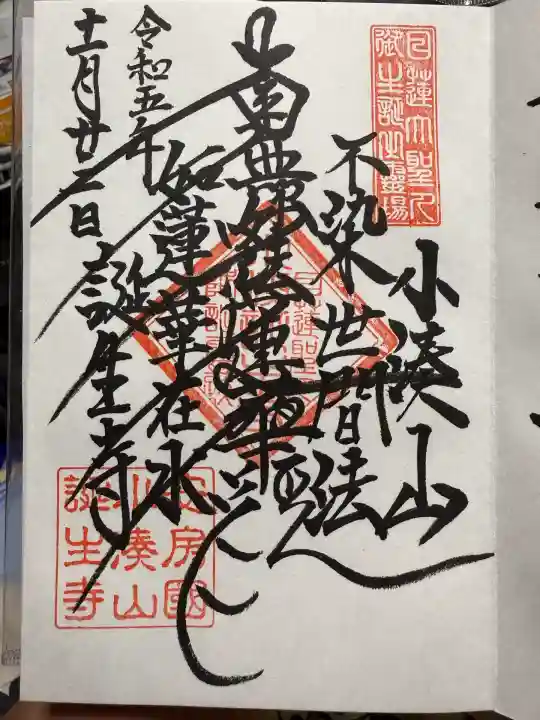 日蓮大聖人
御生誕之靈場
小湊山
不染世間法
南無妙法蓮華経
如蓮華在水
令和五年
十二月廿二日
誕生寺
安房國
小湊山
誕生寺